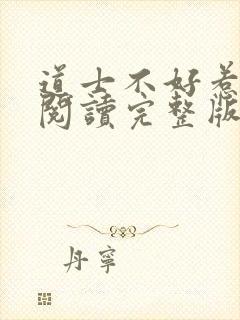 道士不好惹
閱讀完整版
丹寧